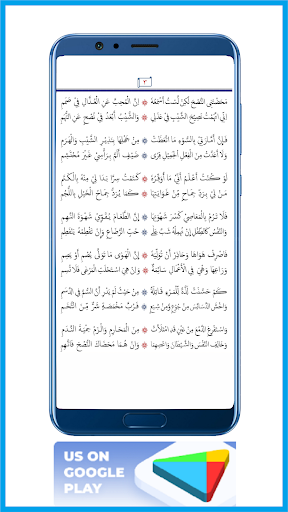 ٣
مَحَضْتَنِي النُّصْحَ لٰكِنْ لَسْتُ أَسْمَعُهُ ۞ إِنَّ الْمُحِبَّ عَنِ الْعُذَّالِ فِي صَمَمِ
إِنِّي اتَّهَمْتُ نَصِيحَ الشَّيْبِ فِي عَذَلِي ۞ وَالشَّيْبُ أَبْعَدُ فِي نُصْحٍ عَنِ التُّهَمِ
فَإِنَّ أَمَّارَتِي بِالسُّوءِ مَا اتَّعَظَتْ ۞ مِنْ جَهْلِهَا بِنَذِيرِ الشَّيْبِ وَالْهَرَمِ
وَلَا أَعَدَّتْ مِنَ الْفِعْلِ الْجَمِيلِ قِرَى ۞ ضَيْفٍ أَلَمَّ بِرَأْسِي غَيْرَ مُحْتَشِمِ
لَوْ كُنْتُ أَعْلَمُ أَنِّي مَا أُوَقِّرُهُ ۞ كَتَمْتُ سِرًّا بَدَا لِي مِنْهُ بِالْكَتَمِ
مَنْ لِي بِرَدِّ جِمَاحٍ مِنْ غَوَايَتِهَا ۞ كَمَا يُرَدُّ جِمَاحُ الْخَيْلِ بِاللُّجُمِ
فَلَا تَرُمْ بِالْمَعَاصِي كَسْرَ شَهْوَتِهَا ۞ إِنَّ الطَّعَامَ يُقَوِّي شَهْوَةَ النَّهِمِ
وَالنَّفْسُ كَالطِّفْلِ إِنْ تُهْمِلْهُ شَبَّ عَلَى ۞ حُبِّ الرَّضَاعِ وَإِنْ تَفْطِمْهُ يَنْفَطِمِ
فَاصْرِفْ هَوَاهَا وَحَاذِرْ أَنْ تُوَلِّيَهُ ۞ إِنَّ الْهَوَى مَا تَوَلَّى يُصْمِ أَوْ يَصِمِ
وَرَاعِهَا وَهْيَ فِي الْأَعْمَالِ سَائِمَةٌ ۞ وَإِنْ هِيَ اسْتَحْلَتِ الْمَرْعَى فَلَا تُسِمِ
كَمْ حَسَّنَتْ لَذَّةً لِلْمَرْءِ قَاتِلَةً ۞ مِنْ حَيْثُ لَمْ يَدْرِ أَنَّ السُّمَّ فِي الدَّسَمِ
وَاخْشَ الدَّسَائِسَ مِنْ جُوعٍ وَمِنْ شِبَعٍ ۞ فَرُبَّ مَخْمَصَةٍ شَرٌّ مِنَ التُّخَمِ
وَاسْتَفْرِغِ الدَّمْعَ مِنْ عَيْنٍ قَدِ امْتَلَأَتْ ۞ مِنَ الْمَحَارِمِ وَالْزَمْ حِمْيَةَ النَّدَمِ
وَخَالِفِ النَّفْسَ وَالشَّيْطَانَ وَاعْصِهِمَا ۞ وَإِنْ هُمَا مَحَضَاكَ النُّصْحَ فَاتَّهِمِ
US ON
GOOGLE
PLAY